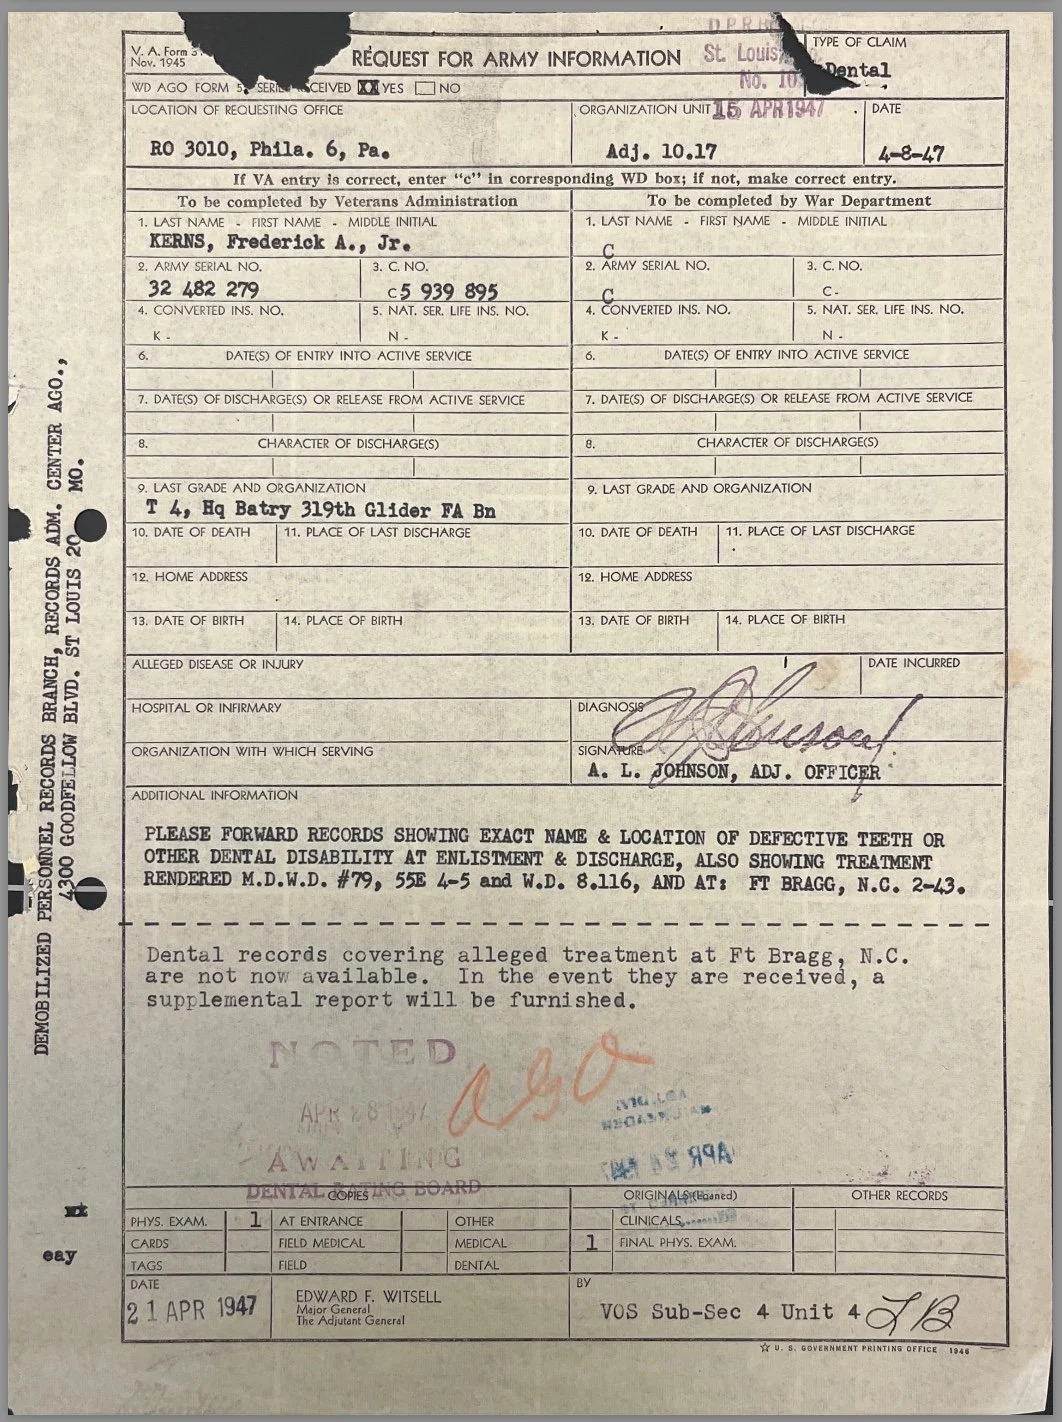 V. A. Form 3
Nov. 1945
REQUEST FOR ARMY INFORMATION
D.P.R.B.
St. Louis
No. 10
TYPE OF CLAIM
Dental
WD AGO FORM 5 SERIES RECEIVED XX YES NO
LOCATION OF REQUESTING OFFICE
RO 3010, Phila. 6, Pa.
ORGANIZATION UNIT
15 APR 1947
Adj. 10.17
DATE
4-8-47
If VA entry is correct, enter "c" in corresponding WD box; if not, make correct entry.
To be completed by Veterans Administration
To be completed by War Department
1. LAST NAME - FIRST NAME - MIDDLE INITIAL
KERNS, Frederick A., Jr.
1. LAST NAME - FIRST NAME - MIDDLE INITIAL
C
2. ARMY SERIAL NO.
32 482 279
3. C. NO.
C5 939 895
2. ARMY SERIAL NO.
C
3. C. NO.
C-
4. CONVERTED INS. NO.
K -
5. NAT. SER. LIFE INS. NO.
N -
4. CONVERTED INS. NO.
K -
5. NAT. SER. LIFE INS. NO.
N -
6. DATE(S) OF ENTRY INTO ACTIVE SERVICE
6. DATE(S) OF ENTRY INTO ACTIVE SERVICE
7. DATE(S) OF DISCHARGE(S) OR RELEASE FROM ACTIVE SERVICE
7. DATE(S) OF DISCHARGE(S) OR RELEASE FROM ACTIVE SERVICE
8. CHARACTER OF DISCHARGE(S)
8. CHARACTER OF DISCHARGE(S)
9. LAST GRADE AND ORGANIZATION
T 4, Hq Batry 319th Glider FA Bn
9. LAST GRADE AND ORGANIZATION
10. DATE OF DEATH
11. PLACE OF LAST DISCHARGE
10. DATE OF DEATH
11. PLACE OF LAST DISCHARGE
12. HOME ADDRESS
12. HOME ADDRESS
13. DATE OF BIRTH
14. PLACE OF BIRTH
13. DATE OF BIRTH
14. PLACE OF BIRTH
ALLEGED DISEASE OR INJURY
DATE INCURRED
HOSPITAL OR INFIRMARY
DIAGNOSIS
ORGANIZATION WITH WHICH SERVING
SIGNATURE
A L Johnson
A. L. JOHNSON, ADJ. OFFICER
ADDITIONAL INFORMATION
PLEASE FORWARD RECORDS SHOWING EXACT NAME & LOCATION OF DEFECTIVE TEETH OR
OTHER DENTAL DISABILITY AT ENLISTMENT & DISCHARGE, ALSO SHOWING TREATMENT
RENDERED M.D.W.D. #79, 55E 4-5 and W.D. 8.116, AND AT: FT BRAGG, N.C. 2-43.
Dental records covering alleged treatment at Ft Bragg, N.C.
are not now available. In the event they are received, a
supplemental report will be furnished.
NOTED
APR 28 1947
AGO
AWAITING
DENTAL RATING BOARD
COPIES
ORIGINALS (Loaned)
OTHER RECORDS
PHYS. EXAM. 1 AT ENTRANCE OTHER CLINICALS
CARDS FIELD MEDICAL MEDICAL 1 FINAL PHYS. EXAM.
TAGS FIELD DENTAL
DATE
21 APR 1947
EDWARD F. WITSELL
Major General
The Adjutant General
BY
VOS Sub-Sec 4 Unit 4 LB
☆ U. S. GOVERNMENT PRINTING OFFICE 1946
DEMOBILIZED PERSONNEL RECORDS BRANCH, RECORDS ADM. CENTER AGO.,
4300 GOODFELLOW BLVD. ST LOUIS 20 MO.
eay